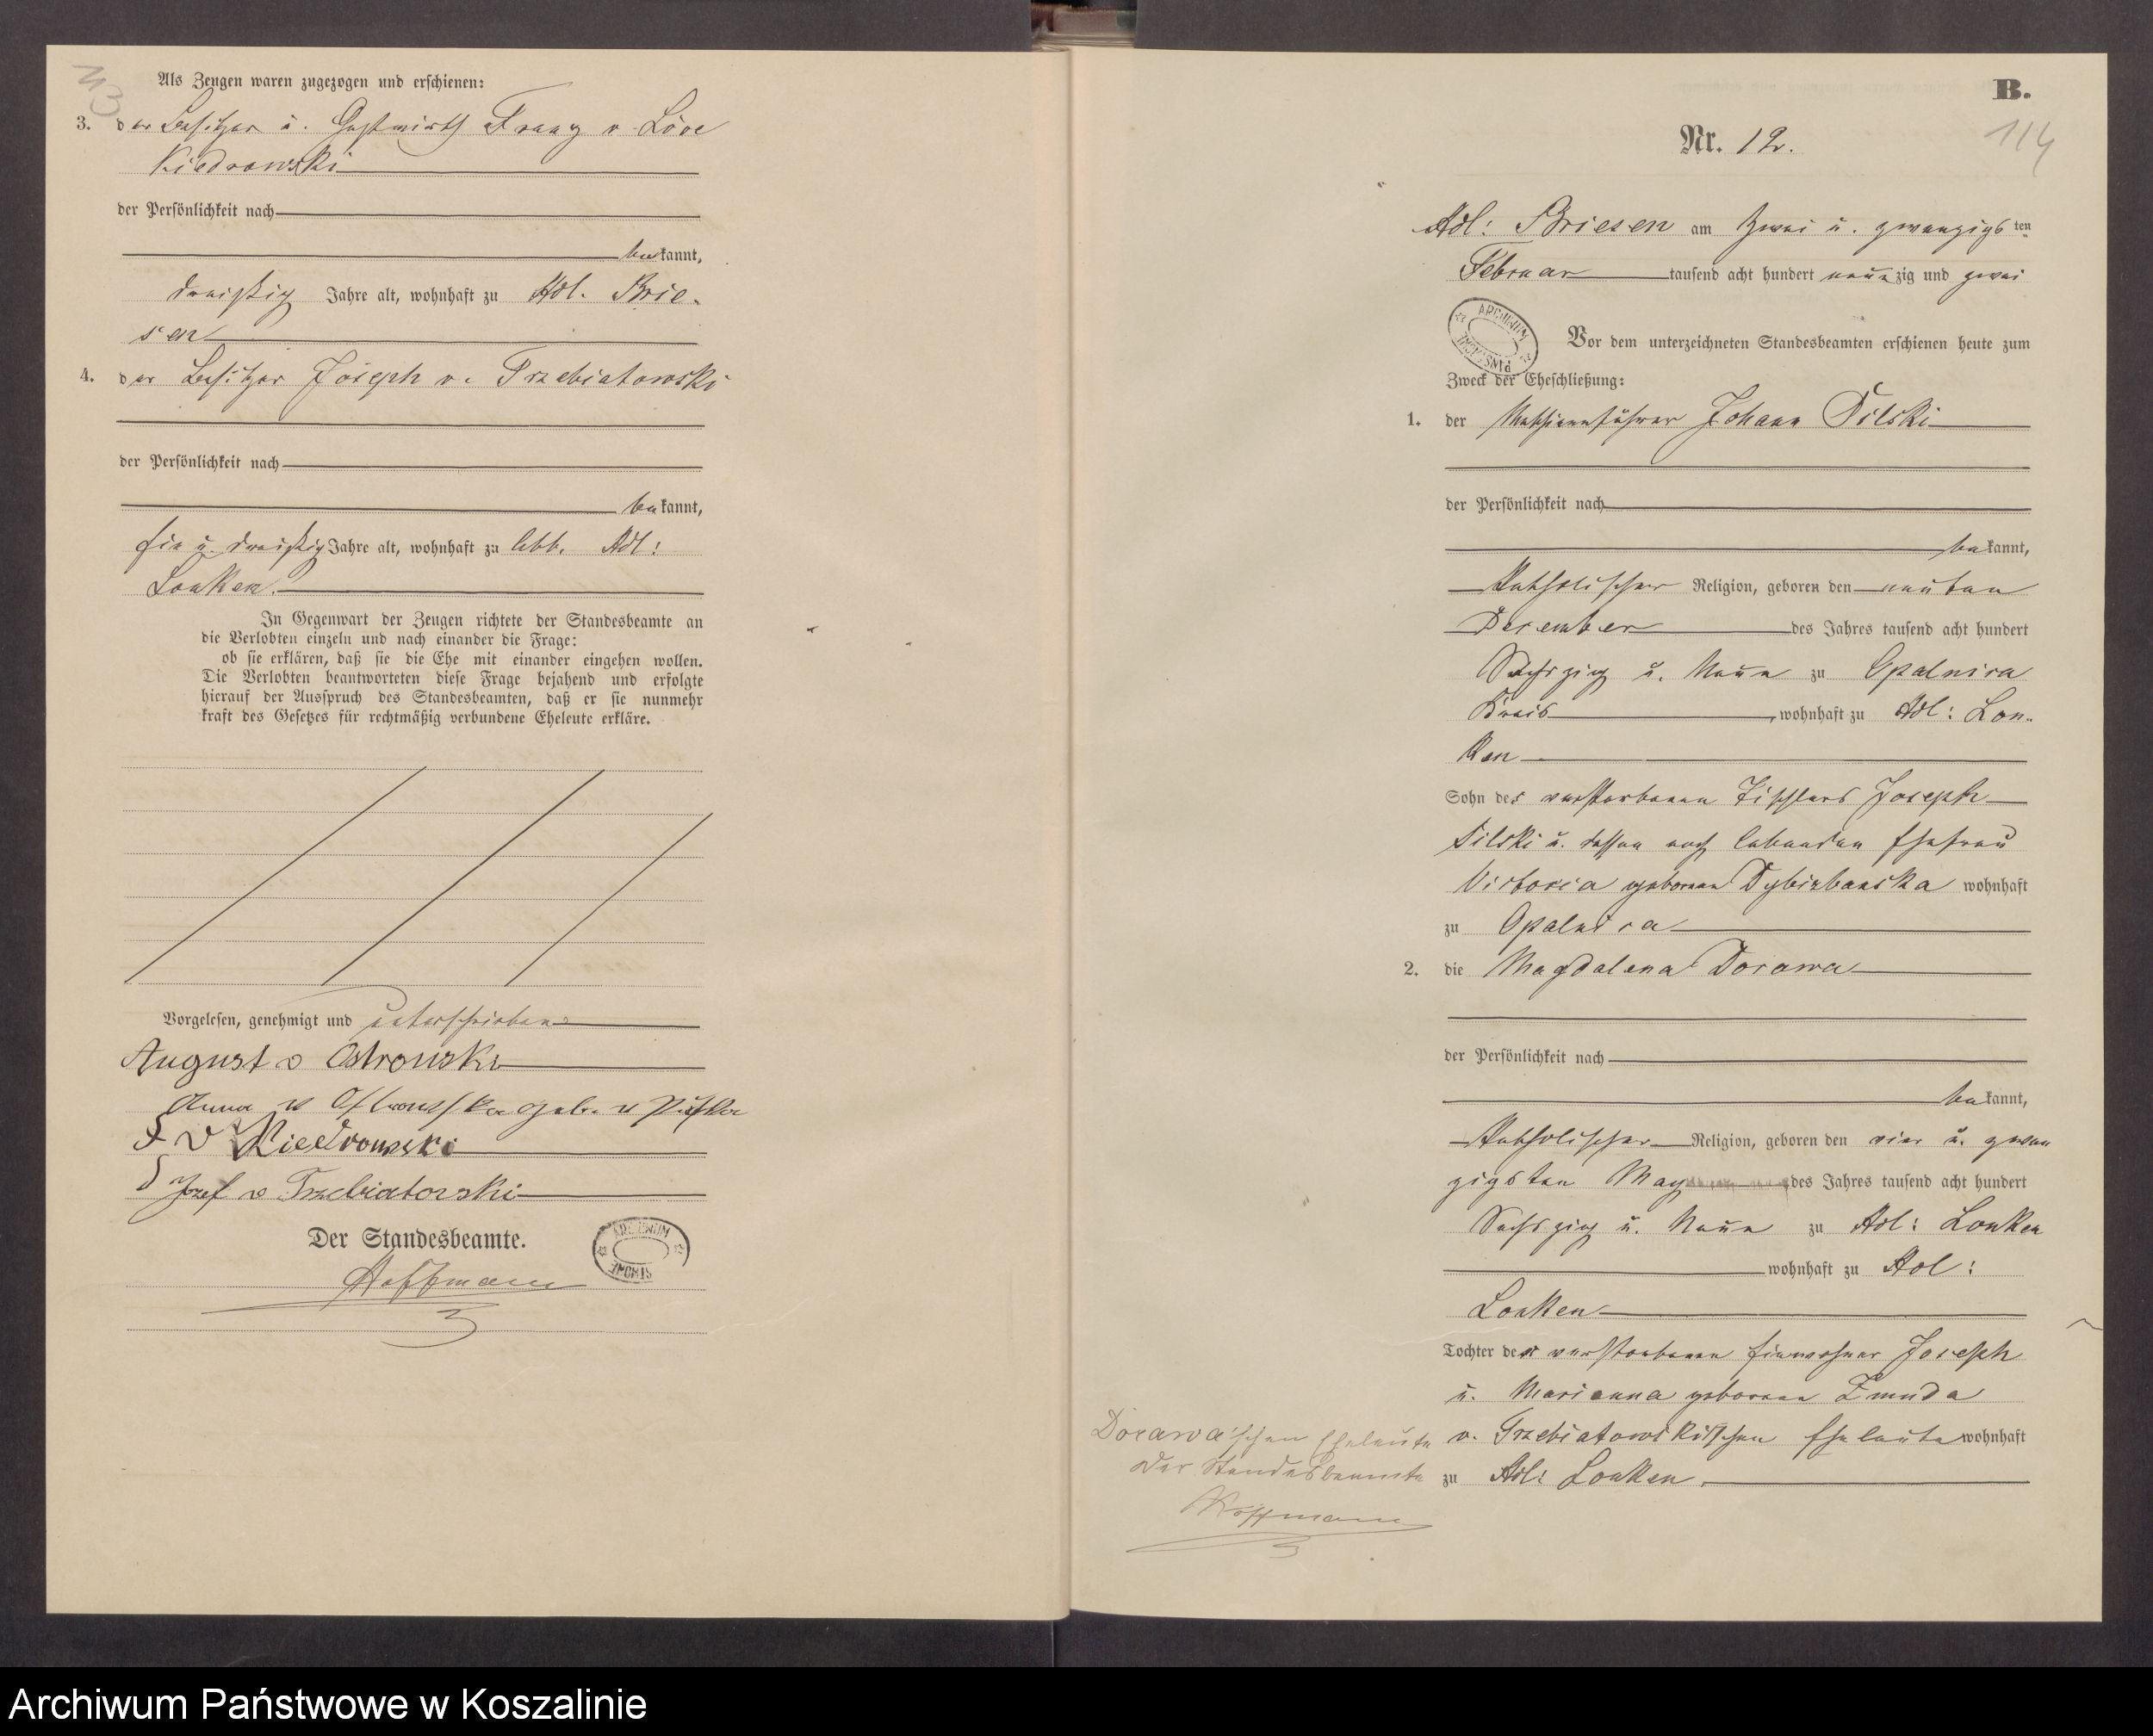 113
Als Zeugen waren zugezogen und erschienen:
3. der Besitzer u. Gastwirth Franz v. Löve
Kiedrowski
der Persönlichkeit nach
bekannt,
dreißig Jahre alt, wohnhaft zu Adl. Brie-
sen
4. der Besitzer Joseph v. Trzebiatowski
der Persönlichkeit nach
bekannt,
ein u. dreißig Jahre alt, wohnhaft zu Adl:
Lonken.
In Gegenwart der Zeugen richtete der Standesbeamte an
die Verlobten einzeln und nach einander die Frage:
ob sie erklären, daß sie die Ehe mit einander eingehen wollen.
Die Verlobten beantworteten diese Frage bejahend und erfolgte
hierauf der Ausspruch des Standesbeamten, daß er sie nunmehr
kraft des Gesetzes für rechtmäßig verbundene Eheleute erkläre.
Vorgelesen, genehmigt und unterschrieben
August v Ostrowski
Anna v Ostrowska geb. v
F v Kiedrowski
Jozef v Trzebiatowski
Der Standesbeamte.
ARCHIWUM
Hoffmann
B.
114
Nr. 12.
Adl: Briesen am zwei u. zwanzigsten
Februar tausend acht hundert neunzig und zwei
ARCHIWUM PAŃSTWOWE
Vor dem unterzeichneten Standesbeamten erschienen heute zum
Zweck der Eheschließung:
1. der Maschienführer Johann Pilski
der Persönlichkeit nach
bekannt,
katholischer Religion, geboren den neunten
December des Jahres tausend acht hundert
Sechszig u. Neun zu Opalnica
Kreis, wohnhaft zu Adl: Lon-
ken
Sohn des verstorbenen Tischlers Joseph
Pilski u. dessen noch lebenden Ehefrau
Victoria geborene wohnhaft
zu Opalnica
2. die Magdalena Dorawa
der Persönlichkeit nach
bekannt,
katholischer Religion, geboren den vier u. zwan
zigsten May des Jahres tausend acht hundert
Sechszig u. Neun zu Adl: Lonken
wohnhaft zu Adl:
Lonken
Tochter der verstorbenen Einwohner Joseph
u. Marianna geborene Zmuda
v. Trzebiatowskischen Eheleute wohnhaft
zu Adl: Lonken.
Dorawa'schen Eheleute
Der Standesbeamte
Hoffmann
Archiwum Państwowe w Koszalinie